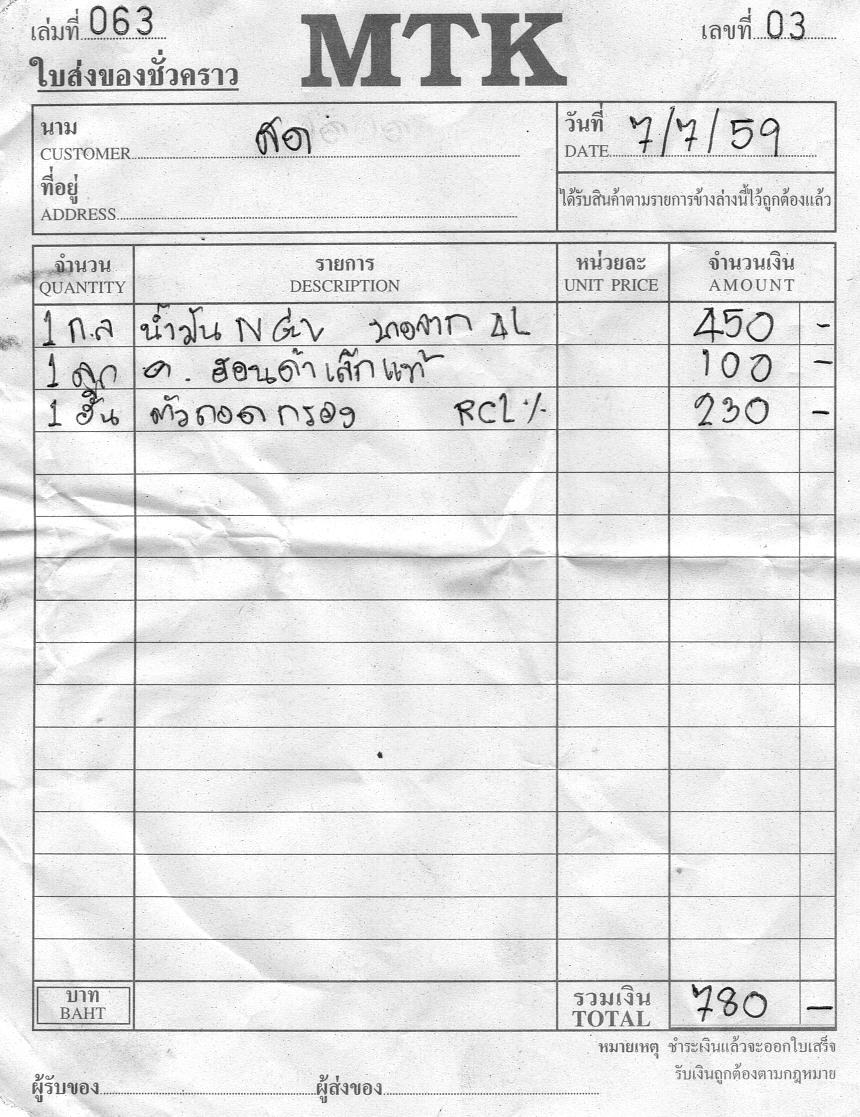 เล่มที่ 063 MTK เลขที่ 03
ใบส่งของชั่วคราว
นาม
CUSTOMER สด
วันที่
DATE 7/7/59
ที่อยู่
ADDRESS
ได้รับสินค้าตามรายการข้างล่างนี้ไว้ถูกต้องแล้ว
จำนวน รายการ หน่วยละ จำนวนเงิน
QUANTITY DESCRIPTION UNIT PRICE AMOUNT
1 ก.ล น้ำมัน 4L 450 -
1 ลูก ค. ฮอนด้าเล็กแท้ 100 -
1 อัน ตัวถอดกรอง 230 -
บาท
BAHT
รวมเงิน
TOTAL 780 -
หมายเหตุ ชำระเงินแล้วจะออกใบเสร็จ
รับเงินถูกต้องตามกฎหมาย
ผู้รับของ ผู้ส่งของ